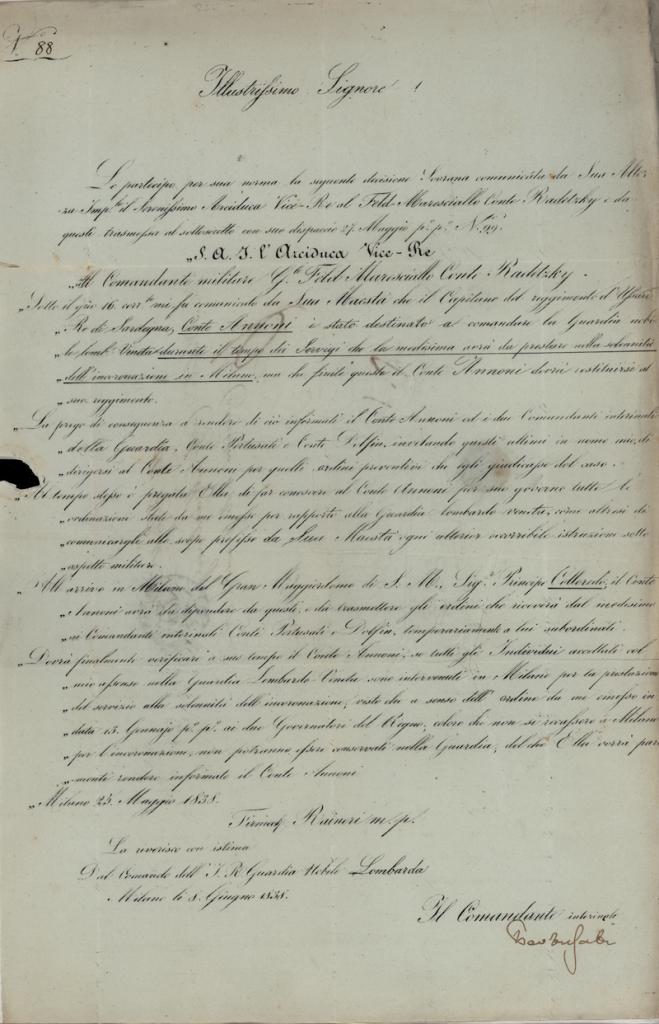 88
Illustrissimo Signore!
Le partecipo per sua norma la seguente decisione Sovrana comunicata da Sua Altez-
za Imp.le il Serenissimo Arciduca Vice-Re al Feld-Maresciallo Conte Radetzky e da
questi trasmessa al sottoscritto con suo dispaccio 27 Maggio p.o p.o N.o
„S. A. I. l'Arciduca Vice-Re
„Al Comandante militare G.le Feld Maresciallo Conte Radetzky.
„Sotto il g.no 16 corr.te mi fu comunicato da Sua Maestà che il Capitano del reggimento d'Ussari
„Re di Sardegna, Conte Annoni è stato destinato a comandare la Guardia nobi-
„le Lomb. Veneta durante il tempo dei Servigi che la medesima avrà da prestare nella solennità
„dell'incoronazione in Milano, ma che finito questo il Conte Annoni dovrà restituirsi al
„suo reggimento.
„La prego di conseguenza a rendere di ciò informati il Conte Annoni ed i due Comandanti interinali
„della Guardia, Conte Pertusati e Conte Dolfin, invitando questi ultimi in nome mio, di
„dirigersi al Conte Annoni per quelli ordini preventivi che egli giudicasse del caso.
„Al tempo stesso è pregata Ella di far conoscere al Conte Annoni per suo governo tutte le
„ordinazioni state da me emesse per rapporto alla Guardia lombardo veneta, come altresì di
„comunicargli allo scopo prefisso da Sua Maestà ogni ulterior occorribile istruzione sotto
„aspetto militare.
„All'arrivo in Milano del Gran Maggiordomo di S. M., Sig.r Principe Colloredo, il Conte
„Annoni avrà da dipendere da questo, e di trasmettere gli ordini che riceverà dal medesimo
„ai Comandanti interinali Conti Pertusati e Dolfin, temporariamente a lui subordinati.
„Dovrà finalmente verificare a suo tempo il Conte Annoni, se tutti gli Individui accettati col
„mio assenso nella Guardia Lombardo Veneta sono intervenuti in Milano per la prestazione
„del servizio alla solennità dell'incoronazione, visto che a senso dell'ordine da me emesso in
„data 13. Gennajo p.o p.o ai due Governatori del Regno, coloro che non si recassero a Milano
„per l'incoronazione, non potranno essere conservati nella Guardia, del che Ella vorrà pari-
„menti rendere informato il Conte Annoni
„Milano 25. Maggio 1838.
Firmat. Raineri m. p.
La riverisco con istima
Dal Comando dell'I. R. Guardia Nobile Lombarda
Milano li 8. Giugno 1838.
Il Comandante interinale